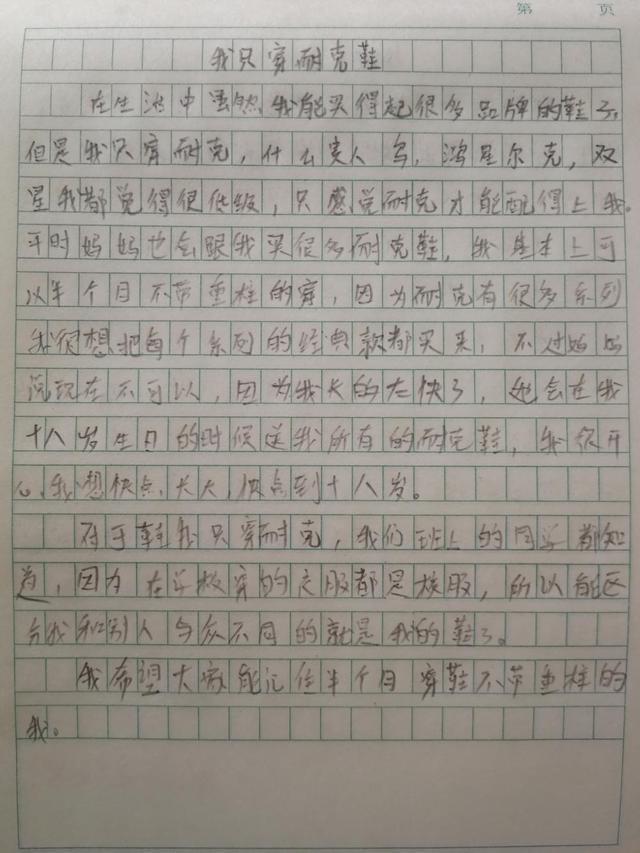 第 页
我只穿耐克鞋
在生活中虽然我能买得起很多品牌的鞋子,
但是我只穿耐克,什么贵人鸟,鸿星尔克,双
星我都觉得很低级,只感觉耐克才能配得上我。
平时妈妈也会跟我买很多耐克鞋,我基本上可
以半个月不带重样的穿,因为耐克有很多系列
我很想把每个系列的经典款都买来,不过妈妈
说现在不可以,因为我长的太快了,她会在我
十八岁生日的时候送我所有的耐克鞋,我很开
心,我想快点长大,快点到十八岁。
对于鞋我只穿耐克,我们班上的同学都知
道,因为在学校穿的衣服都是校服,所以能区
分我和别人与众不同的就是我的鞋了。
我希望大家能记住半个月穿鞋不带重样的
我。